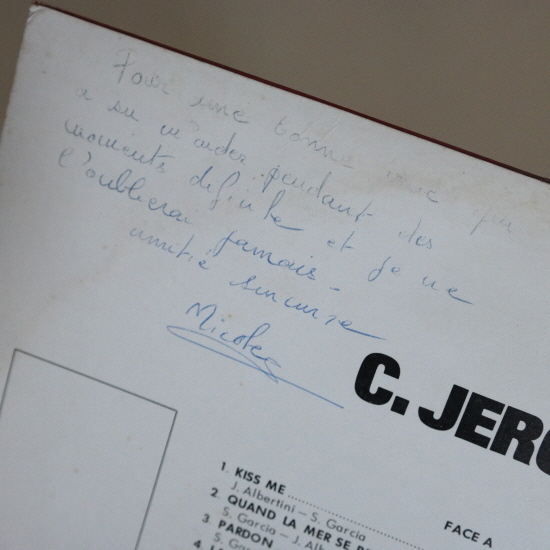 Pour une bonne amie qui
a su m'aider pendant des
moments difficile et je ne
l'oublierai jamais -
amitié sincère
Nicolas
C. JERO
FACE A
1. KISS ME
J. Albertini – S. Garcia
2. QUAND LA MER SE
S. Garcia – J. Alb
3. PARDON
S. Ga
4.